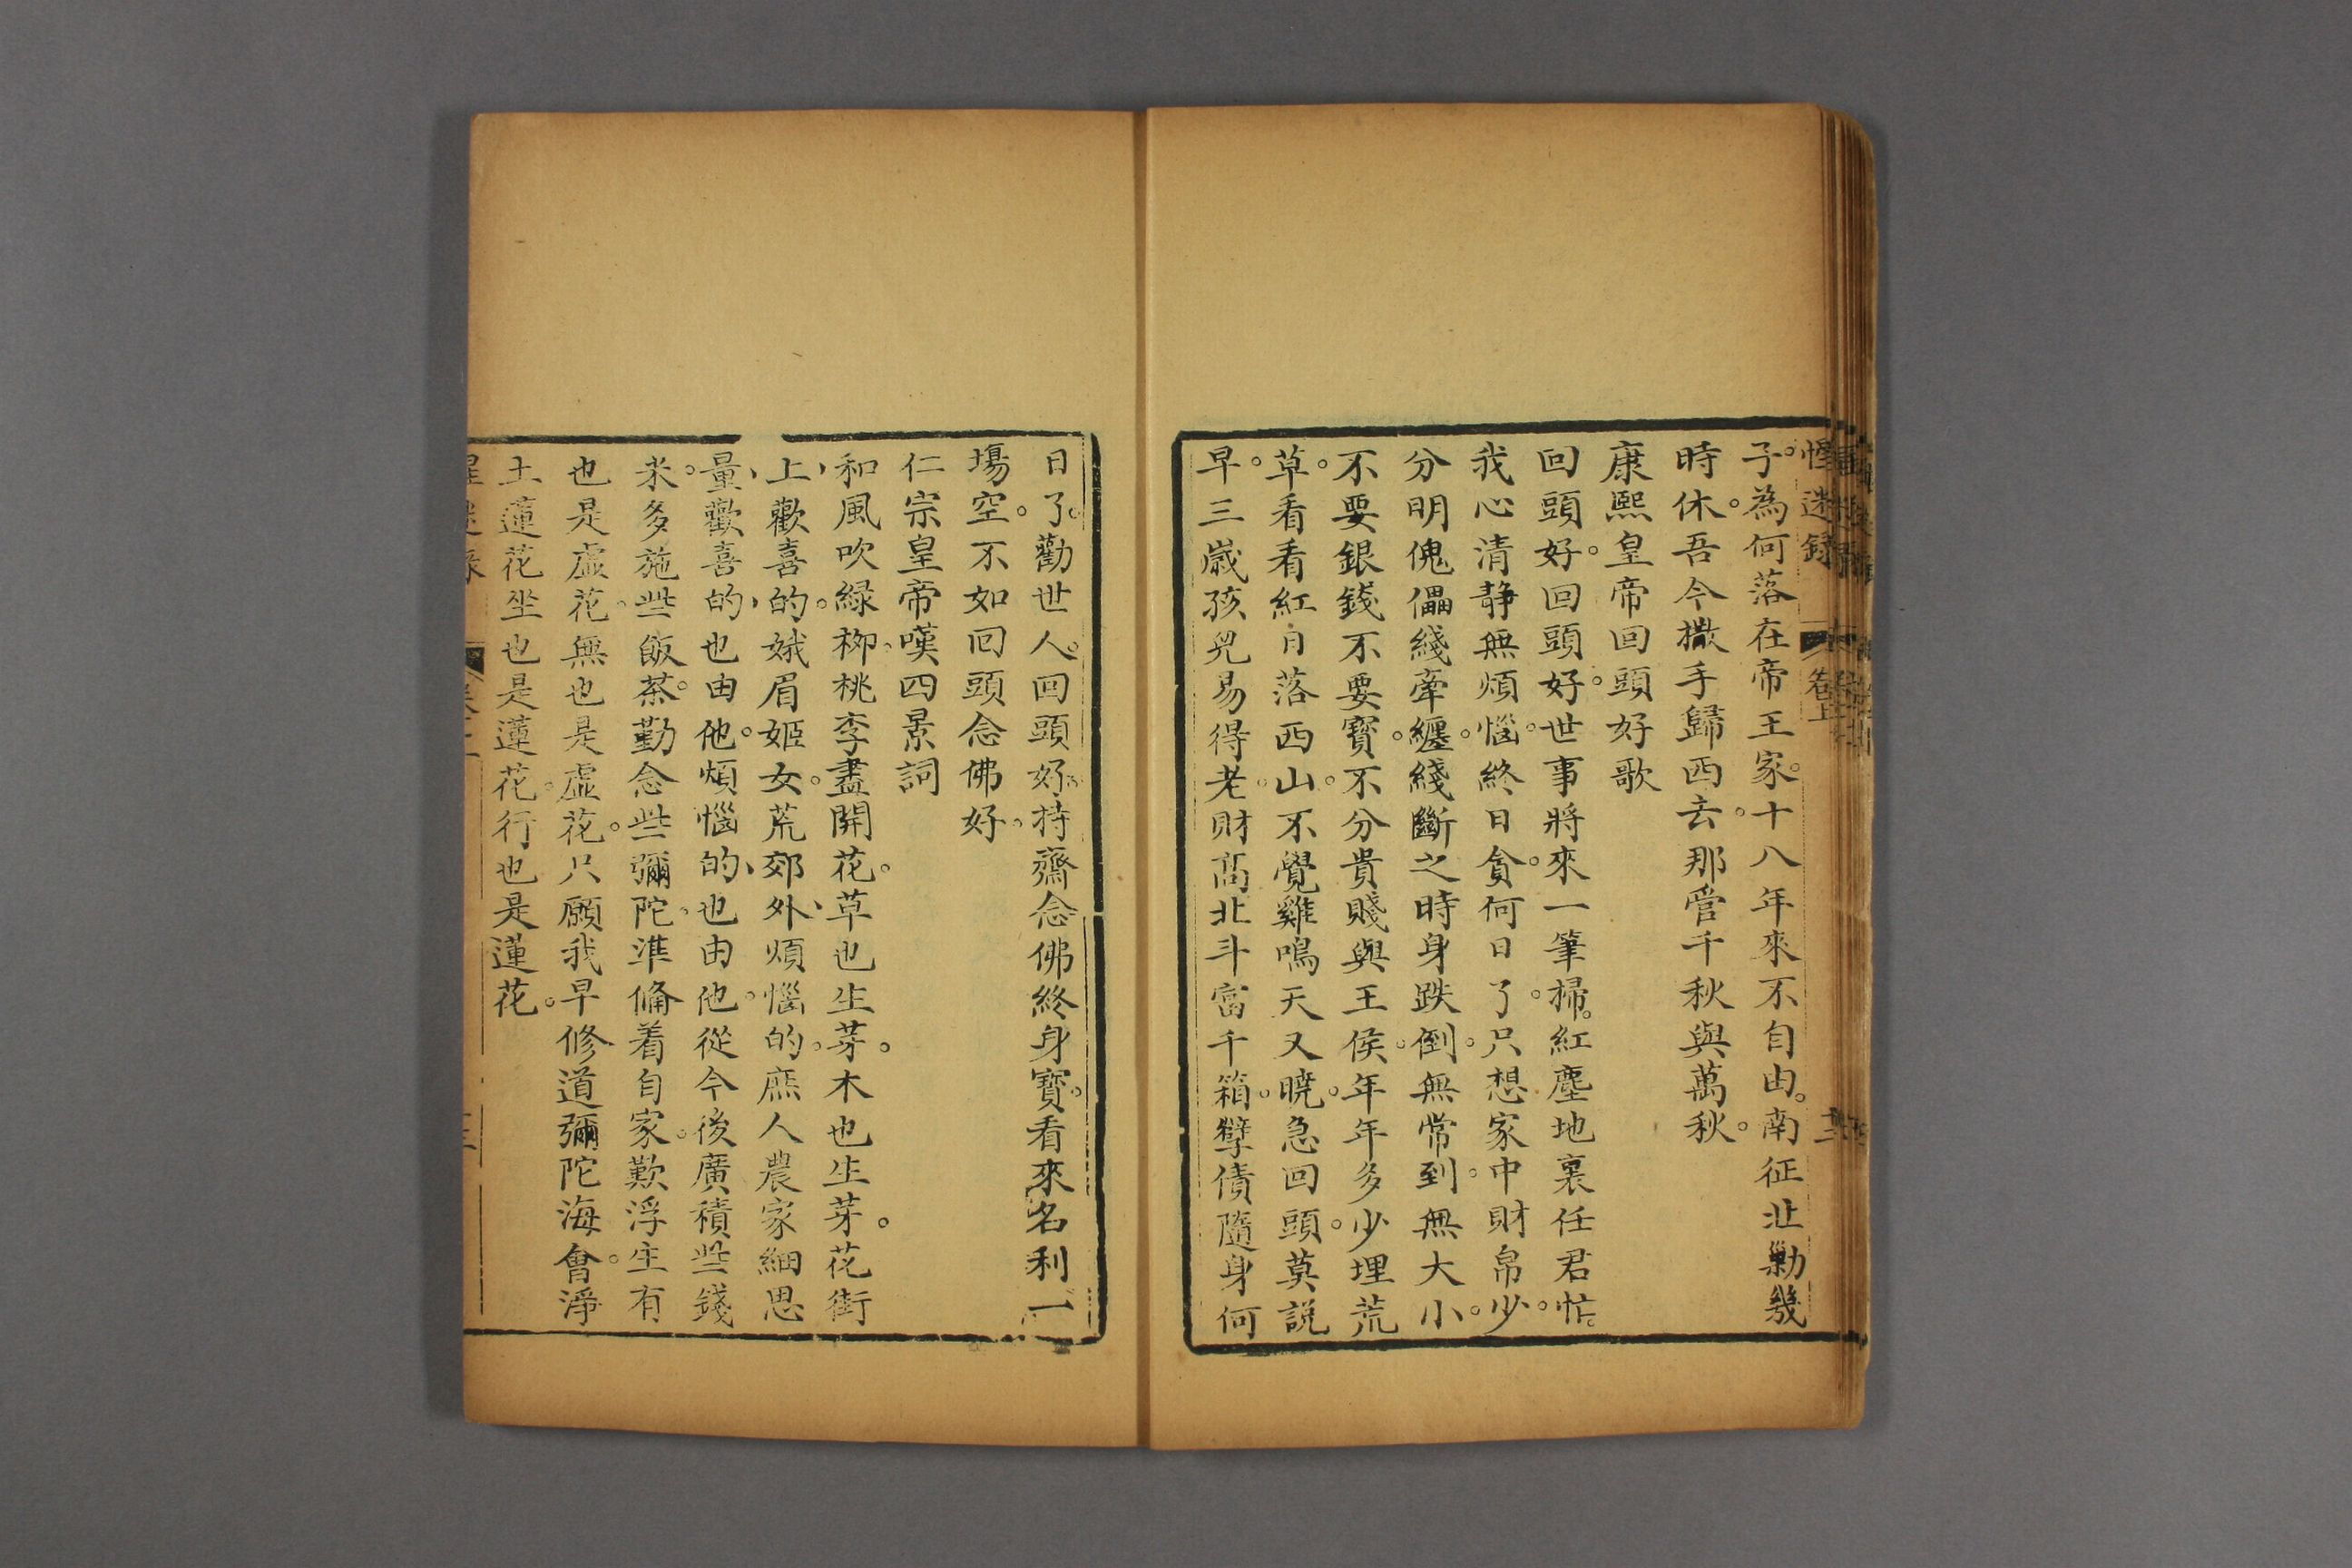 惺迷錄 卷上
子。為何落在帝王家。十八年來不自由。南征北勦幾
時休。吾今撒手歸西去。那管千秋與萬秋。
康熙皇帝回頭好歌
回頭好。回頭好。世事將來一筆掃。紅塵地裏任君忙。
我心清靜無煩惱。終日貪。何日了。只想家中財帛少。
分明傀儡綫牽纏。綫斷之時身跌倒。無常到。無大小。
不要銀錢不要寶。不分貴賤與王侯。年年多少埋荒
草。看看紅日落西山。不覺雞鳴天又曉。急回頭。莫説
早。三歲孩兒易得老。財高北斗富千箱。孽債隨身何
日了。勸世人。回頭好。持齋念佛終身寶。看來名利一
塲空。不如回頭念佛好。
仁宗皇帝嘆四景詞
和風吹綠柳。桃李盡開花。草也生芽。木也生芽。花街
上、歡喜的。娥眉姬女。荒郊外、煩惱的。庶人農家細思
量、歡喜的、也由他。煩惱的、也由他。從今後廣積些錢
米。多施些飯茶。勤念些彌陀。準備着自家。歎浮生有
也是虛花。無也是虛花。只願我早修道彌陀海會。淨
土蓮花坐也是蓮花。行也是蓮花。